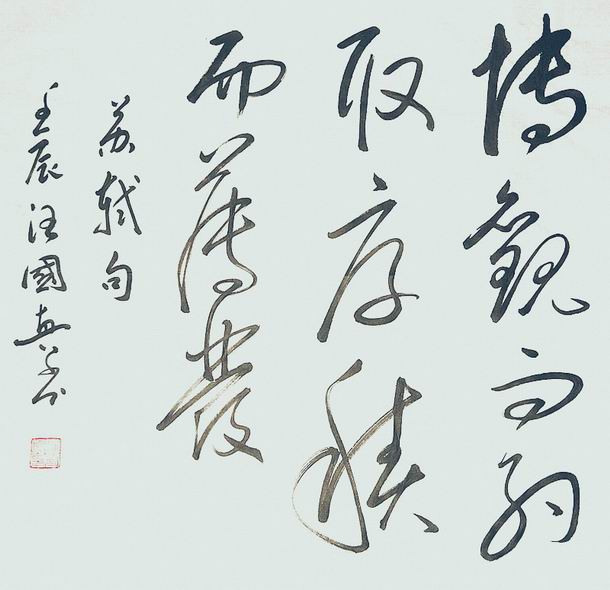 博觀而約
取厚積
而薄發
苏轼句
壬辰汪國真书